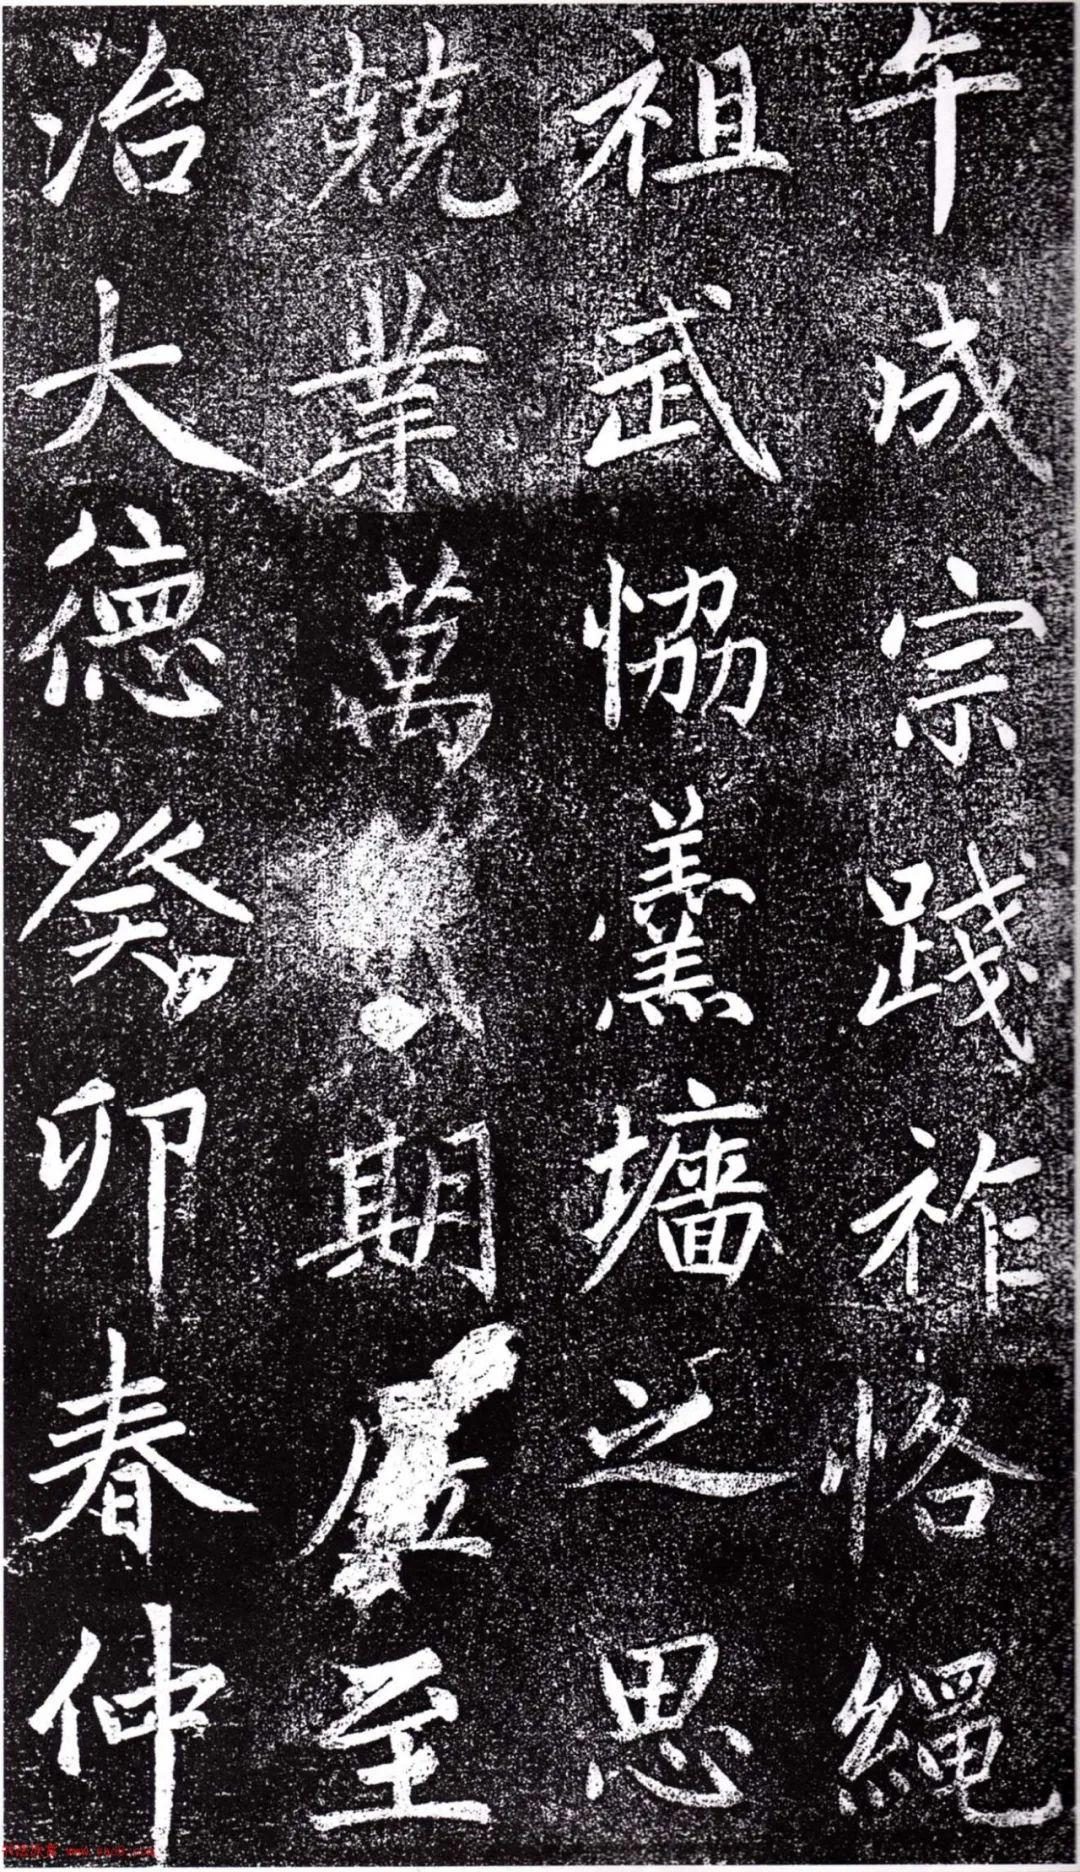 午成宗踐祚恪繩
祖武恊羹墻之思
兢業萬期至
治大德癸卯春仲